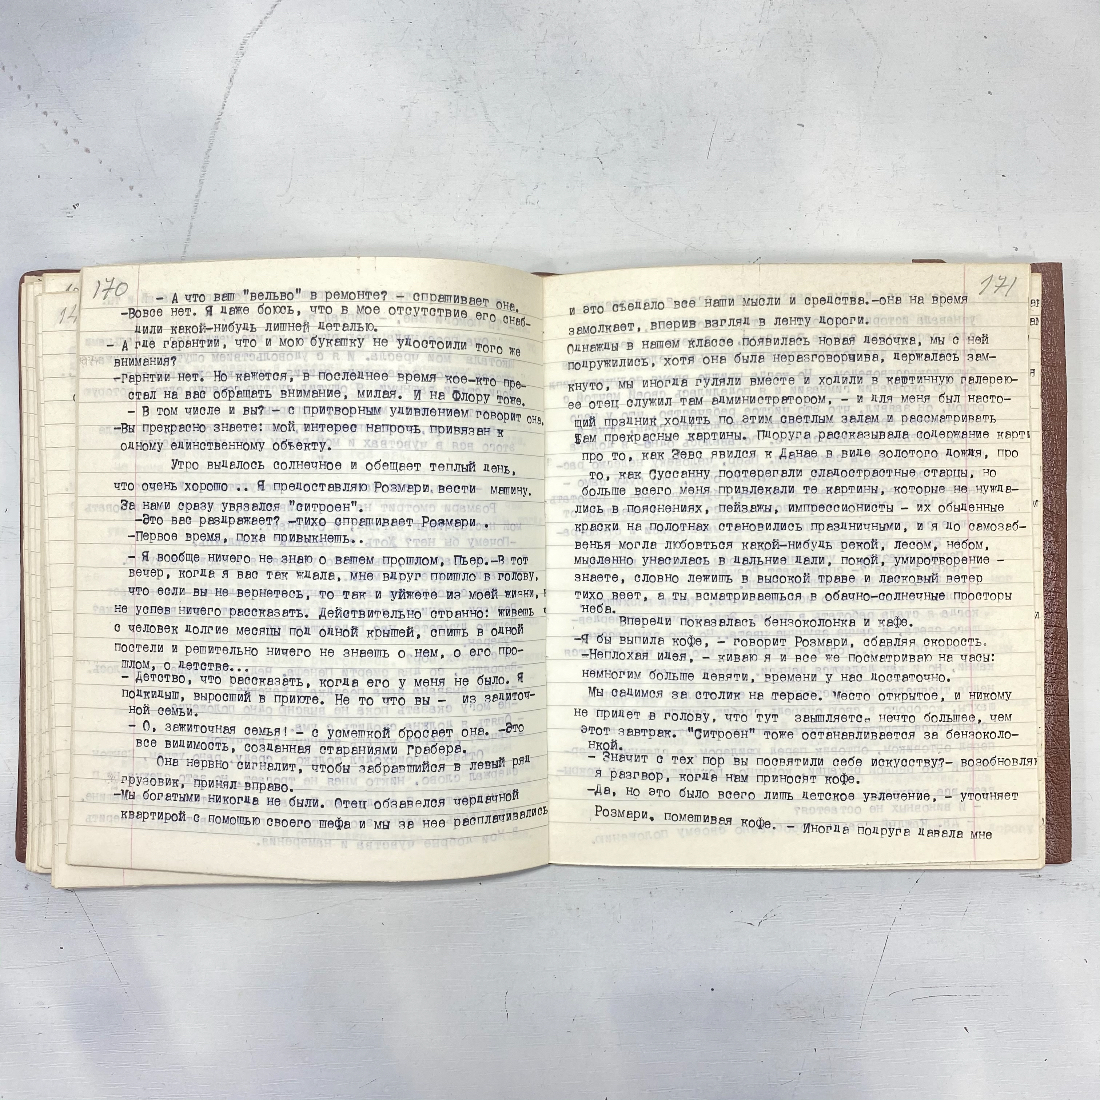 170
- А что ваш "вельво" в ремонте? - спрашивает она.
-Вовсе нет. Я даже боюсь, что в мое отсутствие его снаб-
дили какой-нибудь лишней деталью.
- А где гарантии, что и мою букашку не удостоили того же
внимания?
-Гарнтии нет. Но кажется, в последнее время кое-кто пре-
стал на вас обращать внимание, милая. И на Флору тоже.
- В том числе и вы? - с притворным удивлением говорит она.
-Вы прекрасно знаете: мой интерес напрочь привязан к
одному единственному объекту.
Утро выдалось солнечное и обещает теплый день,
что очень хорошо... Я предоставляю Розмари вести машину.
За нами сразу увязался "ситроен".
-Это вас раздражает? -тихо спрашивает Розмари.
-Первое время, пока привыкнешь..
- Я вообще ничего не знаю о вашем прошлом, Пьер.-В тот
вечер, когда я вас так ждала, мне вдруг пришло в голову,
что если вы не вернетесь, то так и уйжете из моей жизни,
не успев ничего рассказать. Действительно странно: живешь
с человек долгие месяцы под одной крышей, спишь в одной
постели и решительно ничего не знаешь о нем, о его про-
шлом, о детстве...
- Детство, что рассказать, когда его у меня не было. Я
подкидыш, выросший в приюте. Не то что вы - из задиточ-
ной семьи.
- О, зажиточная семья! - с усмешкой бросает она. -Это
все видимость, созданная стараниями Грабера.
Она нервно сигналит, чтобы забравшийся в левый ряд
грузовик, принял вправо.
-Мы богатыми никогда не были. Отец обзавелся чердачной
квартирой с помощью своего шефа и мы за нее расплачивались
171
и это съедало все наши мысли и средства.-она на время
замолкает, вперив взгляд в ленту дороги.
Однажды в нашем классе появилась новая девочка, мы с ней
подружились, хотя она была неразговорчива, держалась зам-
кнуто, мы иногда гуляли вместе и ходили в каштинную галерею-
ее отец служил там администратором, - и для меня был насто-
щий прздник ходить по этим светлым залам и рассматривать
там прекрасные картины. Пдоруга рассказывала содержание карти
про то, как Зевс явился к Данае в виде золотого дождя, про
то, как Суссанну постерегали сладострастные старцы, но
больше всего меня привлекали те картины, которые не нужда-
лись в пояснениях, пейзажы, импрессионисты - их обыденные
краски на полотнах становились праздничными, и я до самозаб-
венья могла любовться какой-нибудь рекой, лесом, небом,
мысленно унасилась в дальние дали, покой, умиротворение -
знаете, словно лежишь в высокой траве и ласковый ветер
тихо веет, а ты всматриваешься в обачно-солнечные просторы
неба.
Впереди показалась бензоколонка и кафе.
-Я бы выпила кофе, - говорит Розмари, сбавляя скорость.
-Неплохая идея, - киваю я и все же посматриваю на часы:
немногим больше девяти, времени у нас достаточно.
Мы садимся за столик на терасе. место открытое, и никому
не придет в голову, что тут замышляется нечто большее, чем
этот завтрак. "Ситроен" тоже останавливается за бензоколо-
нкой.
- Значит с тех пор вы посвятили себе искусству?- возобновляю
я разгвор, когда нам приносят кофе.
-Да, но это было всего лишь детское увлечение, - уточняет
Розмари, помешивая кофе. - Иногда подруга давала мне